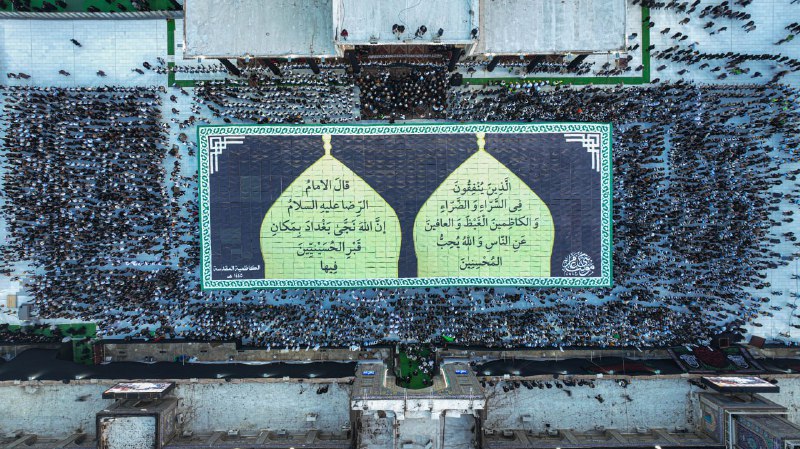 الَّذِينَ يُنْفِقُونَ
فِي السَّرَّاءِ وَ الضَّرَّاءِ
وَ الكَاظِمِينَ الْغَيْظَ وَ العافِينَ
عَنِ النَّاسِ وَ اللَّهُ يُحِبُّ
المُحْسِنِينَ
قالَ الإمامُ
الرِضا عليهِ السلامُ
إنَّ اللهَ نَجَّى بَغْدادَ بِمَكانِ
قَبْرِ الحُسَيْنِيّينَ
فِيها
الكاظمية المقدسة
١٤٤٥ هـ